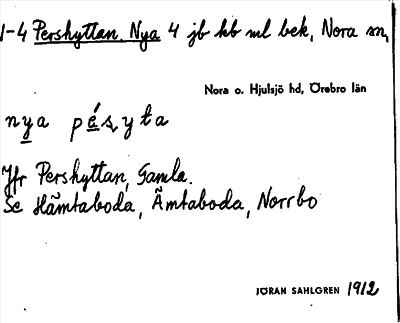 1-4 Pershyttan, Nya 4 jb kb ml bek, Nora sn,
Nora o. Hjulsjö hd, Örebro län
nya pés̨yta
Jfr Pershyttan, Gamla.
Se Hämtaboda, Ämtaboda, Norrbo
JÖRAN SAHLGREN 1912